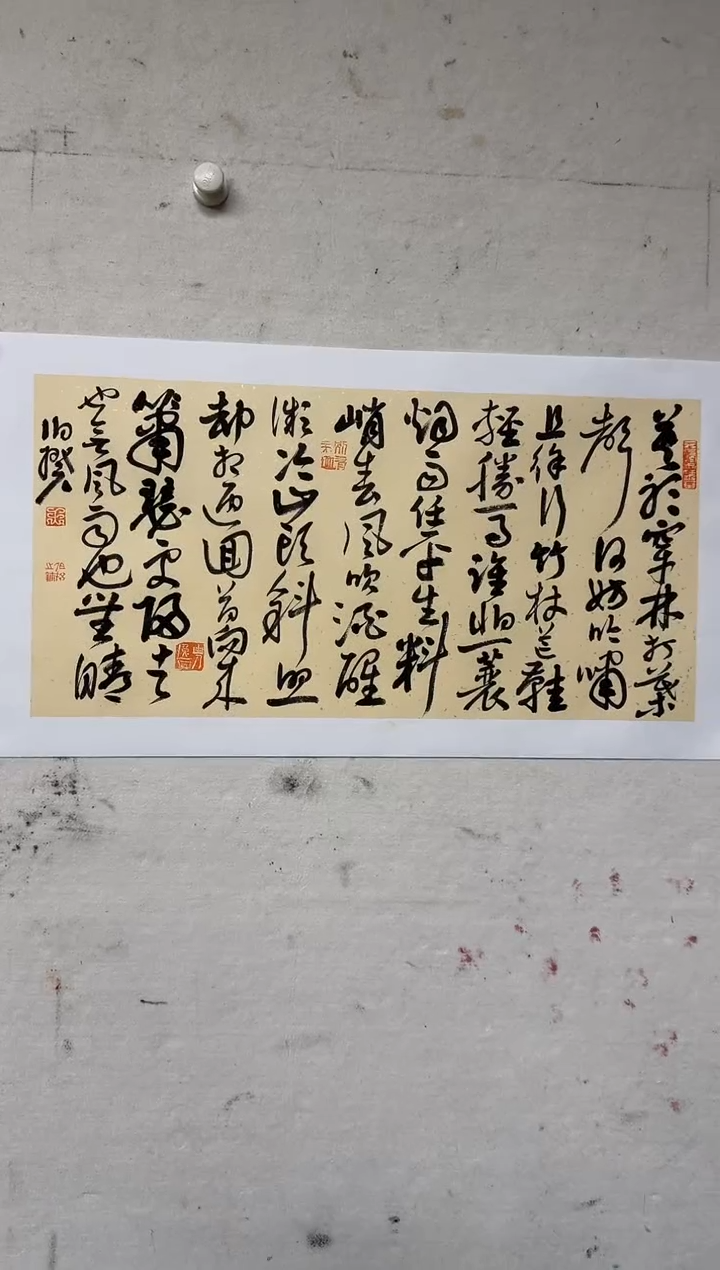 莫聽穿林打葉
聲何妨吟嘯
且徐行竹杖芒鞋
輕勝馬誰怕一蓑
烟雨任平生料
峭春風吹酒醒
微冷山頭斜照
却相迎回首向来
蕭瑟處歸去
也無風雨也無晴